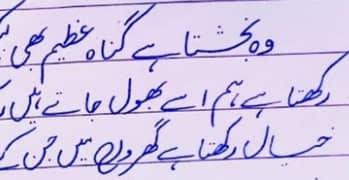 وہ بخشتا ہے گناہ عظیم بھی
رکھتا ہے ہم اسے بھول جاتے ہیں
خیال رکھتا ہے گھروں میں جن کے